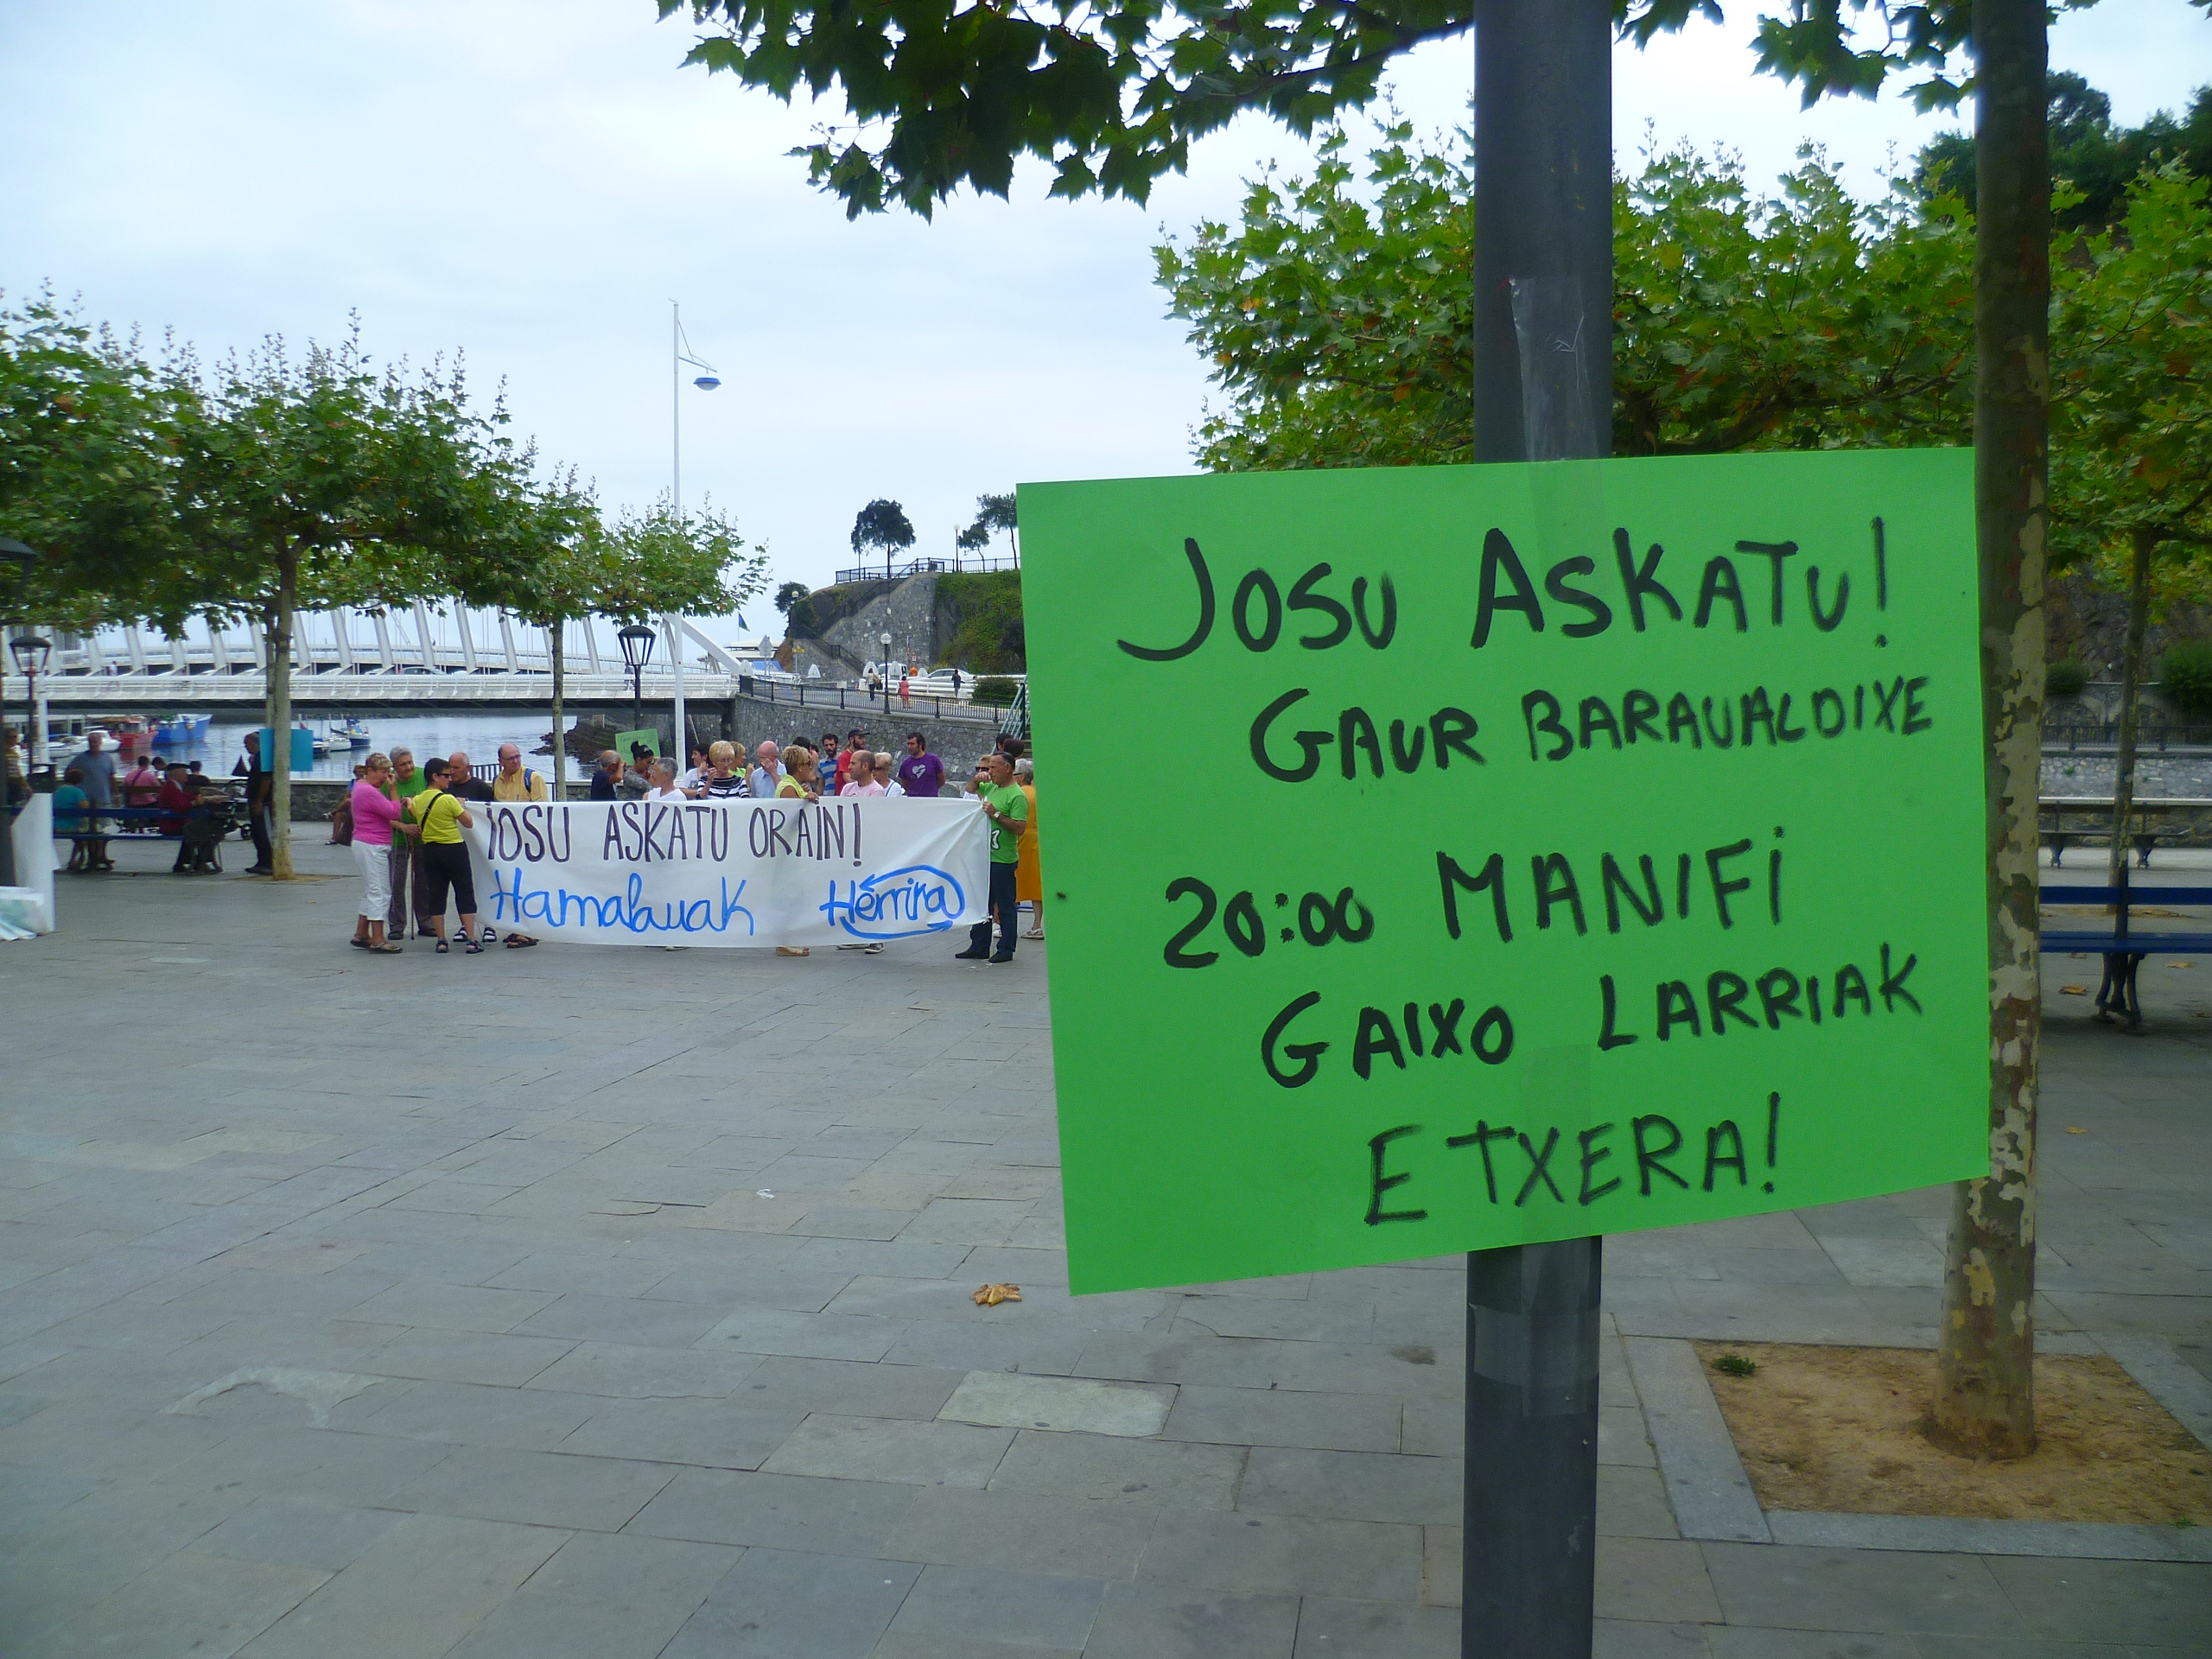 JOSU ASKATU!
GAUR BARAUALDIXE
20:00 MANIFI
GAIXO LARRIAK
ETXERA!
IOSU ASKATU ORAIN!
Hamabauak Herrira